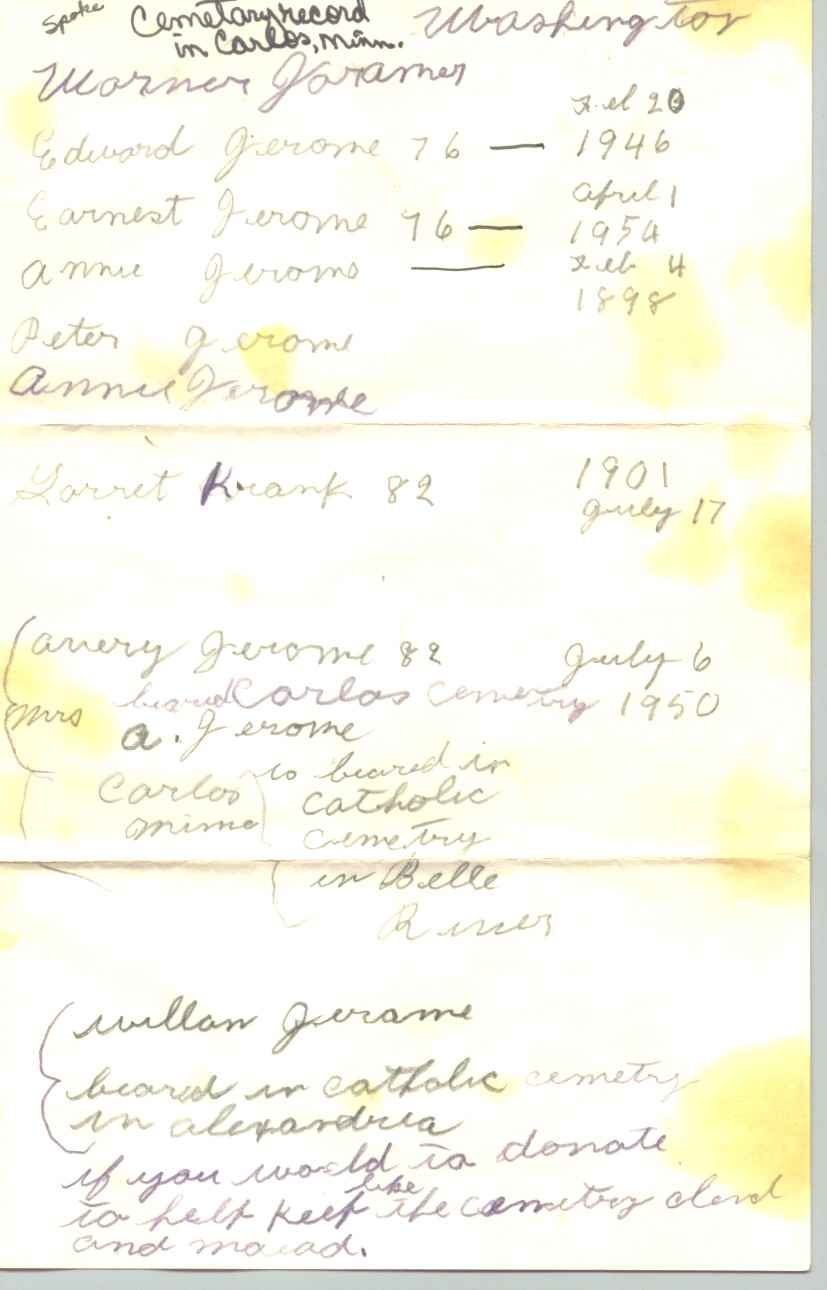 Spoke Cemetary record Washington
in Carlos, Minn.
Warner Jerome
Feb 20
Edward Jerome 76 — 1946
April 1
Earnest Jerome 76 — 1954
Annie Jerome — Feb 4
1898
Peter Jerome
Annie Jerome
Garret Krank 82 1901
July 17
Avery Jerome 82 July 6
beared Carlos cemetry 1950
Mrs a. Jerome
is beared in
Carlos catholic
Minn cemetry
in Belle
River
Jerame
beared in catholic cemetry
in alexandria
if you would to donate
like
to help keep the cemetry
and